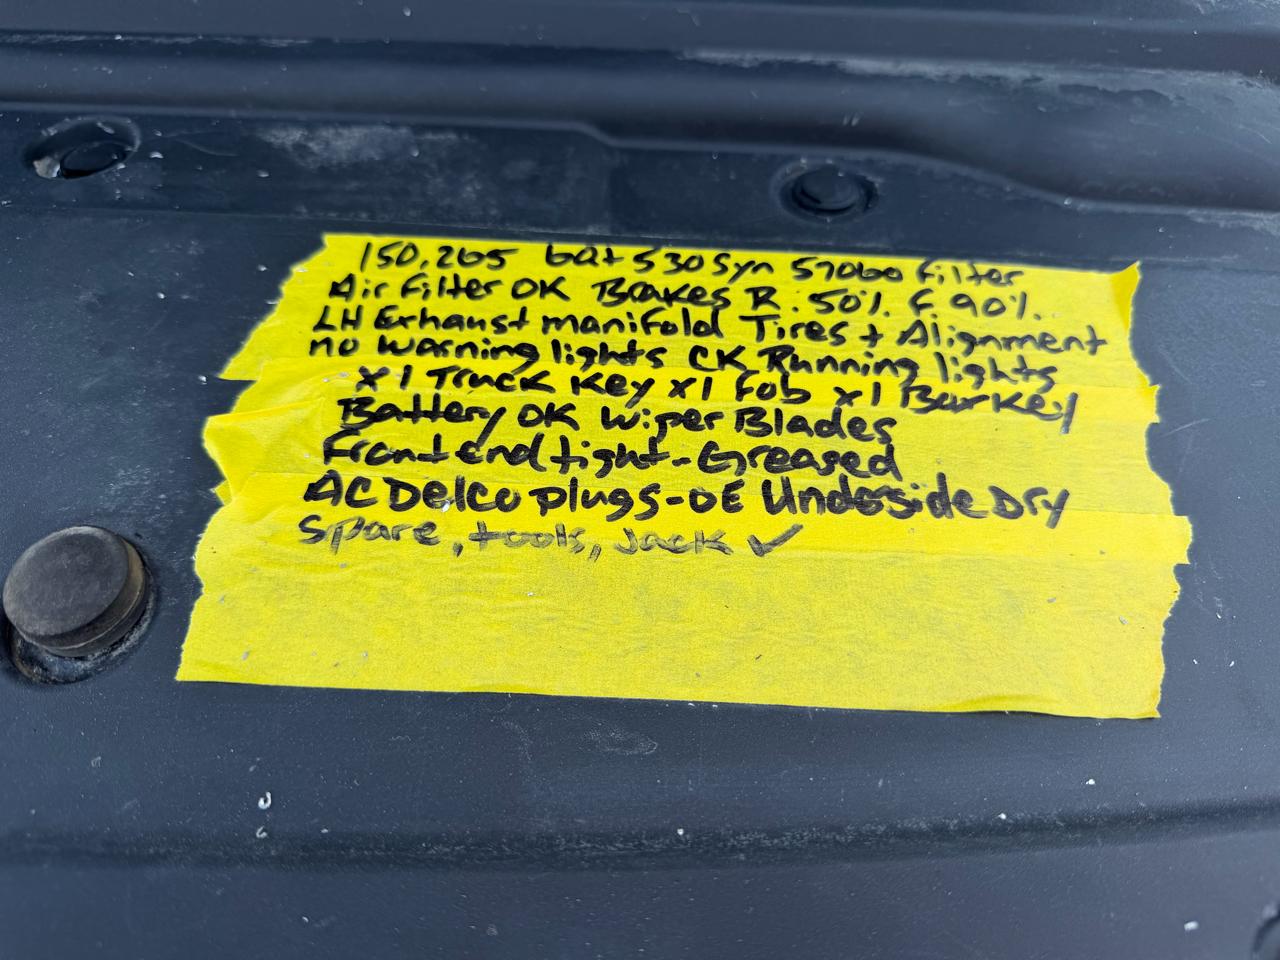 150,265 6qt 530 Syn 57060 Filter
Air Filter OK Brakes R. 50% F. 90%
LH Exhaust manifold Tires + Alignment
no warning lights CK Running lights
x1 Truck Key x1 Fob x1 Bar Key
Battery OK Wiper Blades
Front end tight - Greased
AC Delco plugs - OE Underside Dry
Spare, tools, Jack ✓